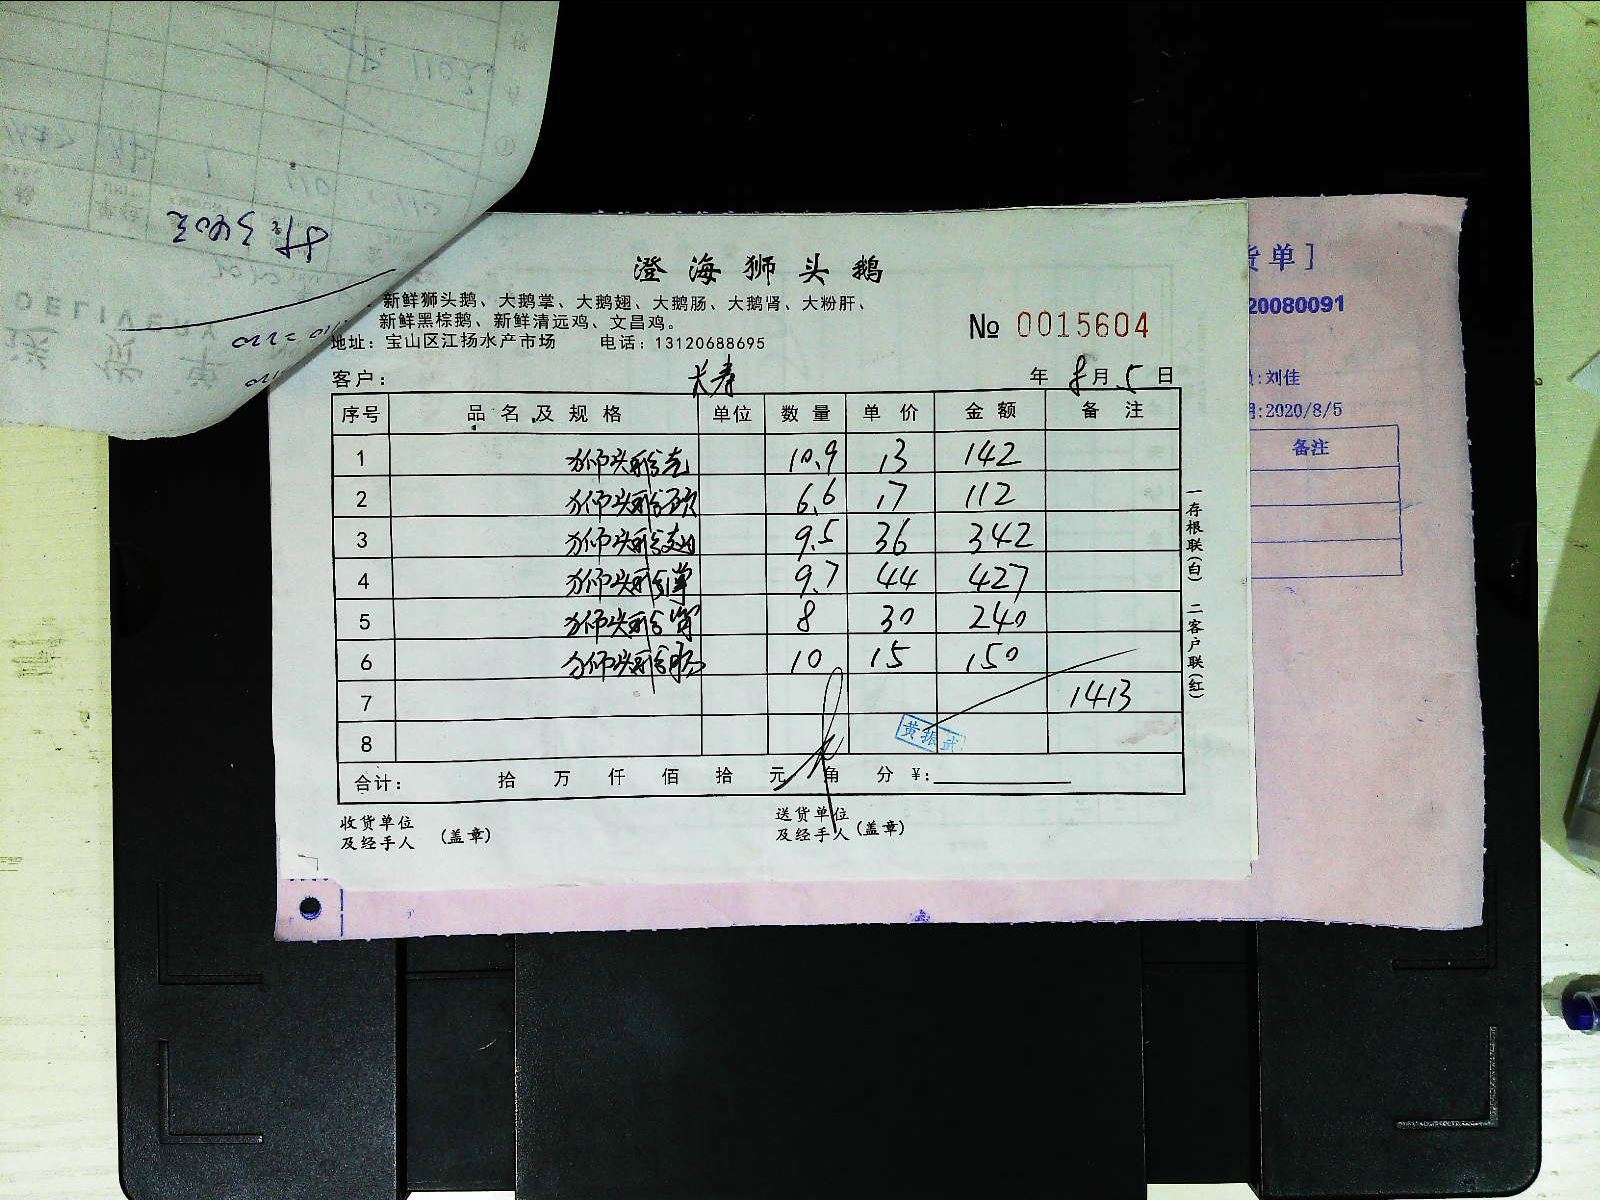 澄海狮头鹅
新鲜狮头鹅、大鹅掌、大鹅翅、大鹅肠、大鹅肾、大粉肝、
新鲜黑棕鹅、新鲜清远鸡、文昌鸡。
地址：宝山区江扬水产市场 电话：13120688695
№ 0015604
客户： 长寿 年 8月 5日
序号 品名及规格 单位 数量 单价 金额 备注
1 狮头鹅 10.9 13 142
2 狮头鹅 6.6 17 112
3 狮头鹅翅 9.5 36 342
4 狮头鹅掌 9.7 44 427
5 狮头鹅肾 8 30 240
6 狮头鹅肠 10 15 150
7 1413
8
黄振武
合计： 拾 万 仟 佰 拾 元 角 分 ¥：
收货单位
及经手人 （盖章）
送货单位
及经手人 （盖章）
一存根联（白） 二客户联（红）
货单］
20080091
:刘佳
:2020/8/5
备注
DELIVERY
送货单